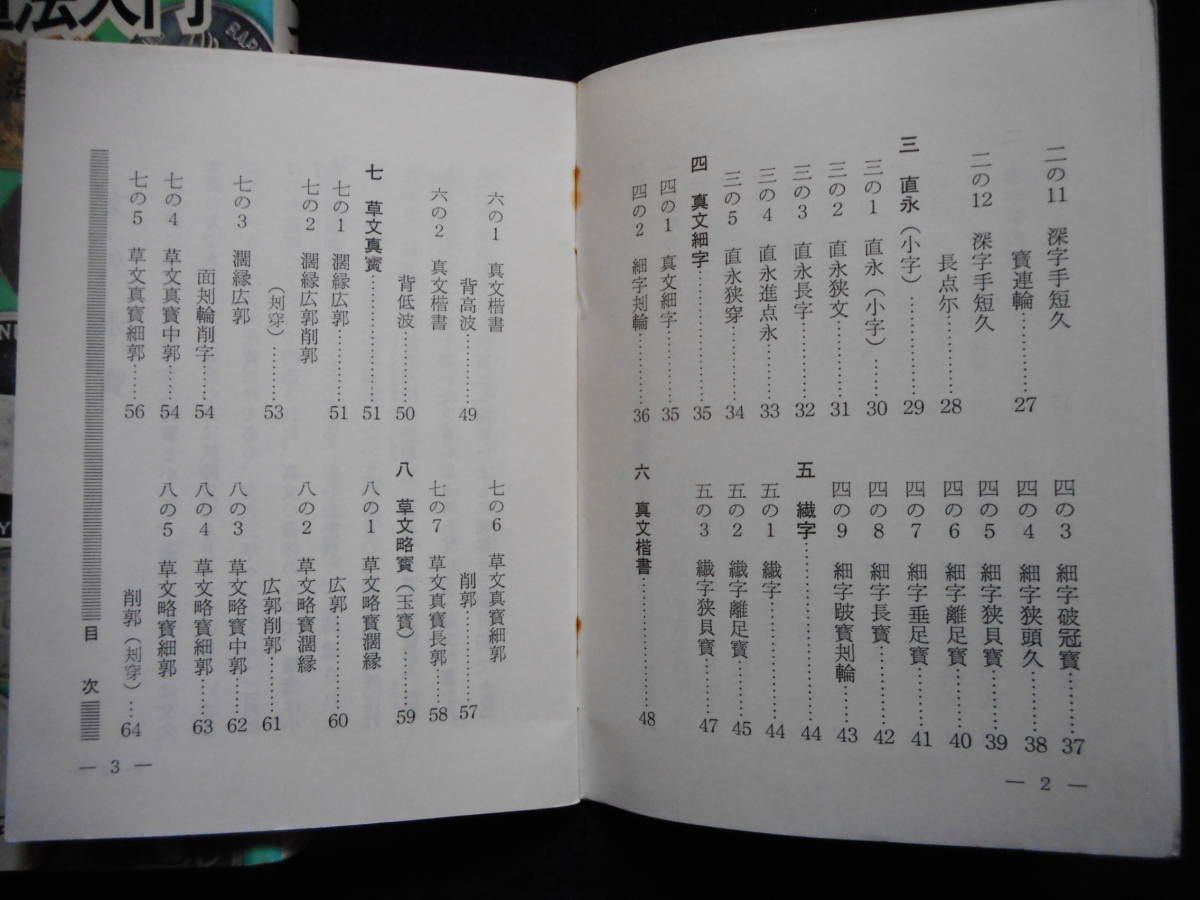 二の11 深字手短久
寶連輪………27
二の12 深字手短久
長点尓………28
三 直永（小字）………29
三の1 直永（小字）………30
三の2 直永狭文………31
三の3 直永長字………32
三の4 直永進点永………33
三の5 直永狭穿………34
四 真文細字………35
四の1 真文細字………35
四の2 細字刔輪………36
四の3 細字破冠寶………37
四の4 細字狭頭久………38
四の5 細字狭貝寶………39
四の6 細字離足寶………40
四の7 細字垂足寶………41
四の8 細字長寶………42
四の9 細字跛寶刔輪………43
五 繊字………44
五の1 繊字………44
五の2 繊字離足寶………45
五の3 繊字狭貝寶………47
六 真文楷書………48
— 2 —
六の1 真文楷書
背高波………49
六の2 真文楷書
背低波………50
七 草文真寳………51
七の1 濶縁広郭………51
七の2 濶縁広郭削郭
（刔穿）………53
七の3 濶縁広郭
面刔輪削字……54
七の4 草文真寶中郭……54
七の5 草文真寶細郭……56
七の6 草文真寶細郭
削郭………57
七の7 草文真寶長郭……58
八 草文略寳（玉寶）………59
八の1 草文略寶濶縁
広郭………60
八の2 草文略寶濶縁
広郭削郭………61
八の3 草文略寶中郭……62
八の4 草文略寶細郭……63
八の5 草文略寶細郭
削郭（刔穿）…64
目次
— 3 —
法入門